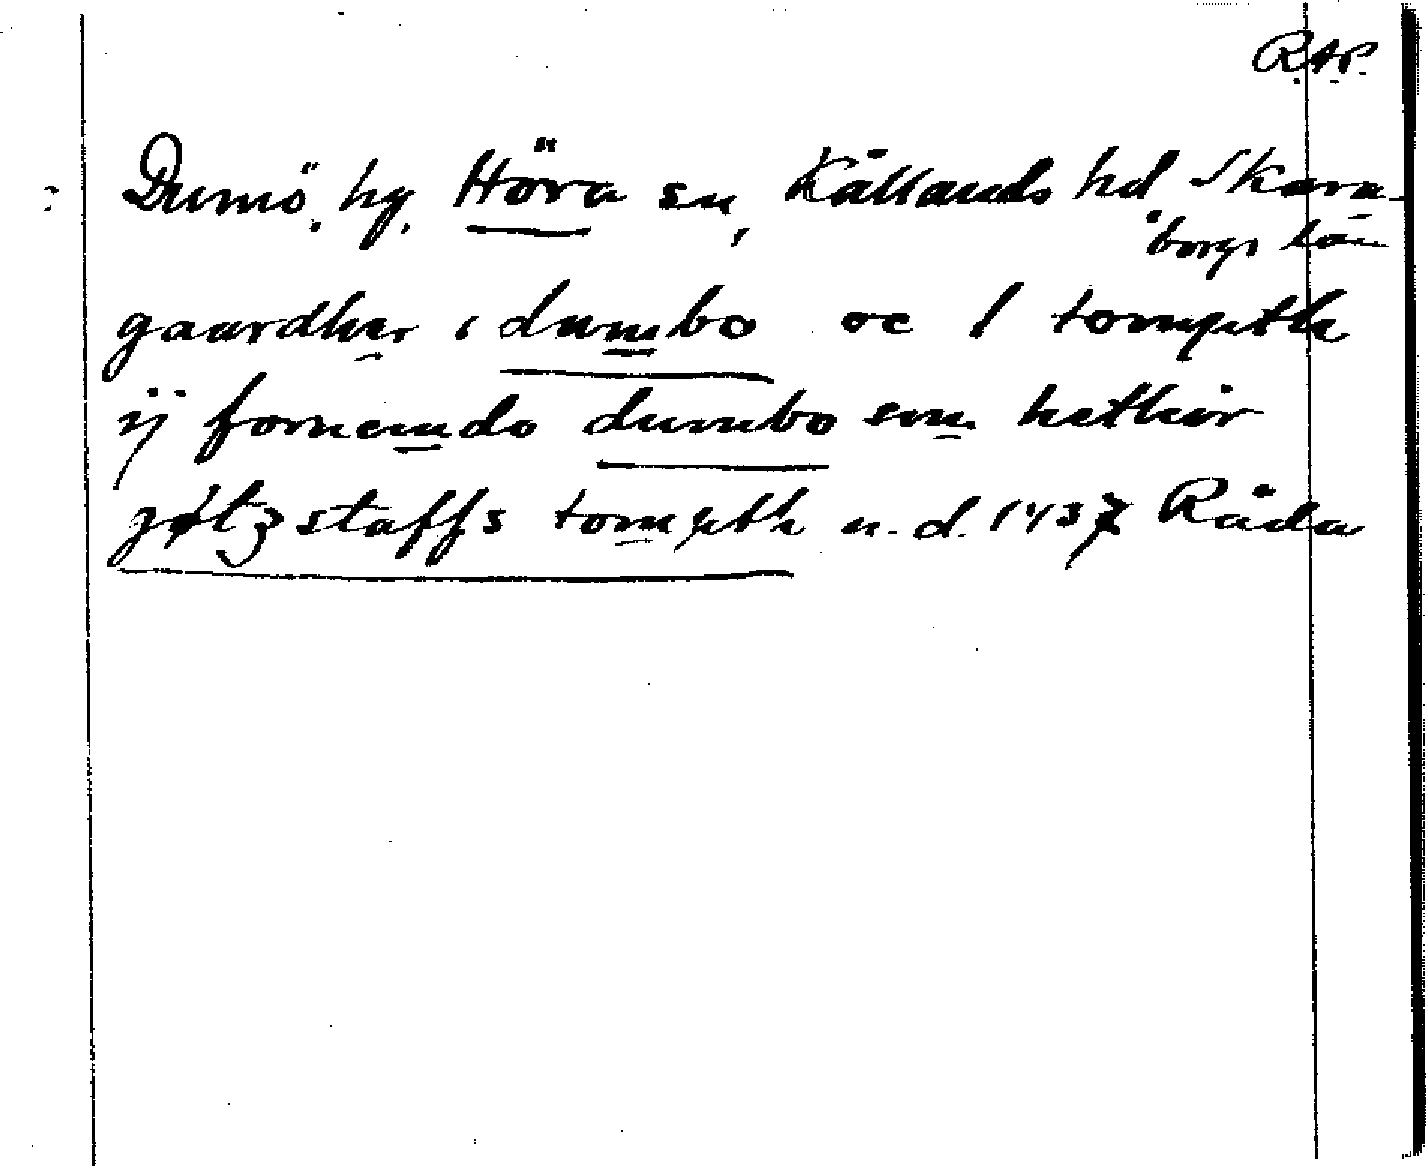 RAP.
Dumö, hg. Höra sn, Kållands hd Skara-
borgs län
gaardher i dumbo oc 1 tompth
ij fornemdo dumbo som hethir
gøtzstaffs tompth u.d. 1437 Råda